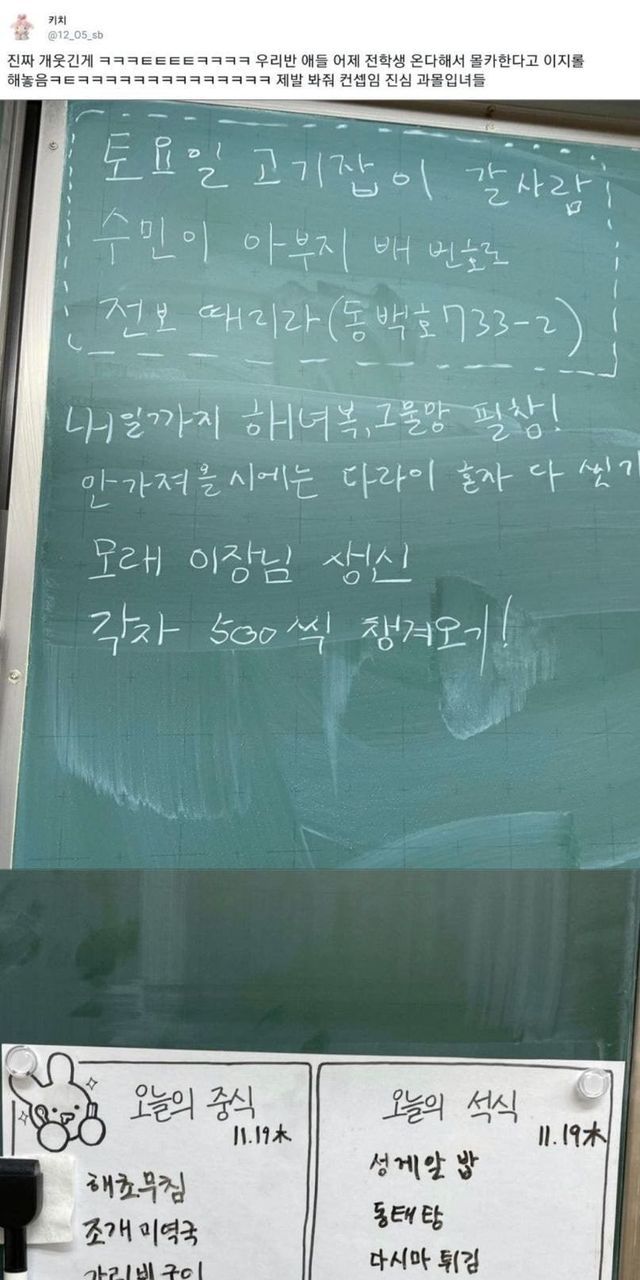 키치
@12_05_sb
진짜 개웃긴게 ㅋㅋㅋㅌㅌㅌㅌㅋㅋㅋㅋ 우리반 애들 어제 전학생 온다해서 몰카한다고 이지롤
해놓음ㅋㅌㅋㅋㅋㅋㅋㅋㅋㅋㅋㅋㅋㅋㅋㅋ 제발 봐줘 컨셉임 진심 과몰입녀들
토요일 고기잡이 갈사람
수민이 아부지 배 번호로
전보 때리라(동백호733-2)
내일까지 해녀복,그물망 필참!
안가져올시에는 다라이 혼자 다 씻기
모레 이장님 생신
각자 500씩 챙겨오기!
오늘의 중식
11.19木
해초무침
조개미역국
가리비구이
오늘의 석식
11.19木
성게알 밥
동태탕
다시마 튀김